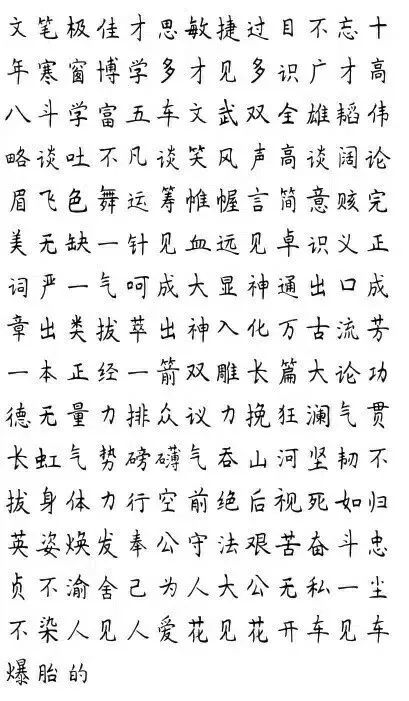 文笔极佳才思敏捷过目不忘十
年寒窗博学多才见多识广才高
八斗学富五车文武双全雄韬伟
略谈吐不凡谈笑风声高谈阔论
眉飞色舞运筹帷幄言简意赅完
美无缺一针见血远见卓识义正
词严一气呵成大显神通出口成
章出类拔萃出神入化万古流芳
一本正经一箭双雕长篇大论功
德无量力排众议力挽狂澜气贯
长虹气势磅礴气吞山河坚韧不
拔身体力行空前绝后视死如归
英姿焕发奉公守法艰苦奋斗忠
贞不渝舍己为人大公无私一尘
不染人见人爱花见花开车见车
爆胎的